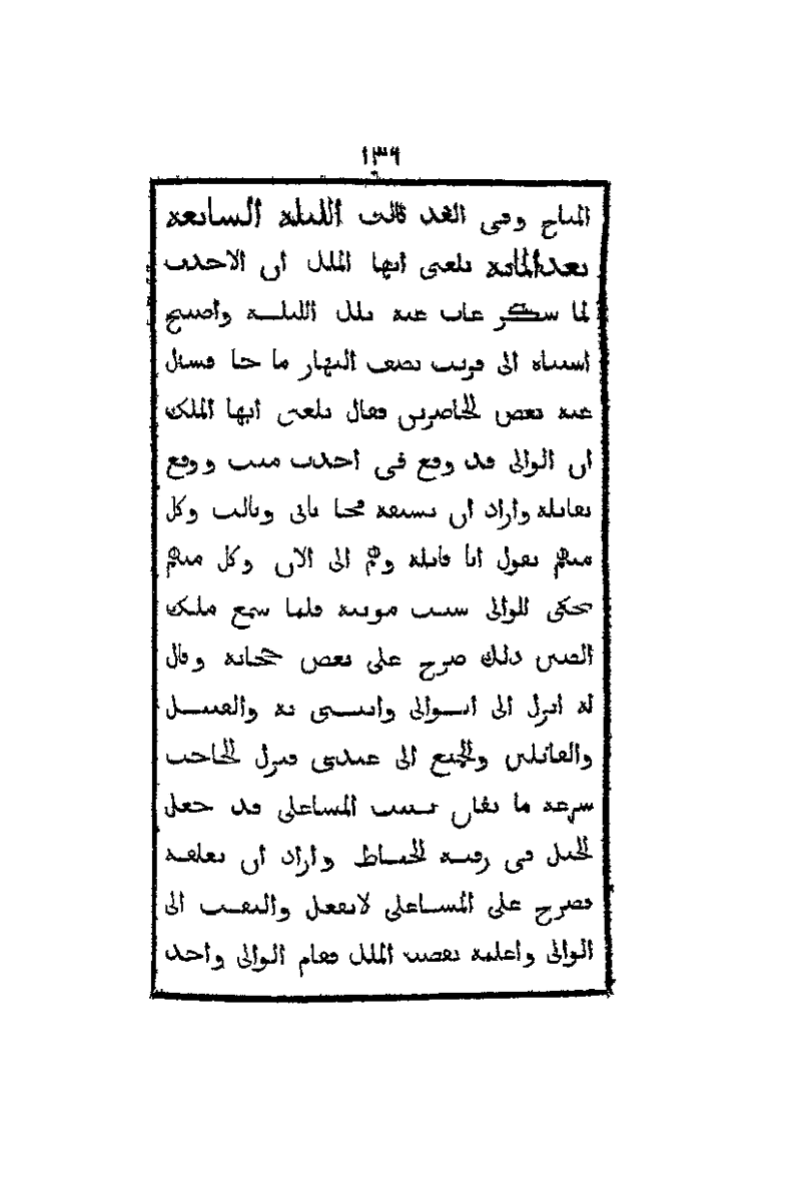 ١٣٩
المباح وفى الغد قالت الليلة السابعة
بعد المائة بلغنى ايها الملك ان الاحدب
لما سكر غاب عنه تلك الليلة واصبح
استناه الى قريب نصف النهار ما جا فسئل
عنه بعض الحاضرين فقال بلغنى ايها الملك
ان الوالى قد وقع فى احدب ميت ووقع
بقاتله واراد ان يشنقه فجا ثانى وثالث وكل
منهم يقول انا قاتله وهم الى الان وكل منهم
يحكى للوالى سبب موتته فلما سمع ملك
الصين ذلك صرخ على بعض حجابه وقال
له انزل الى الوالى وايتنى به والقتيل
والقاتلين والجميع الى عندى فنزل الحاجب
سرعه ما بقاش تسبب المشاعلى قد جعل
الحبل فى رقبة الخياط واراد ان يعلقه
فصرخ على المشاعلى لا تفعل والتفت الى
الوالى واعلمه بقصت الملك فقام الوالى واخد